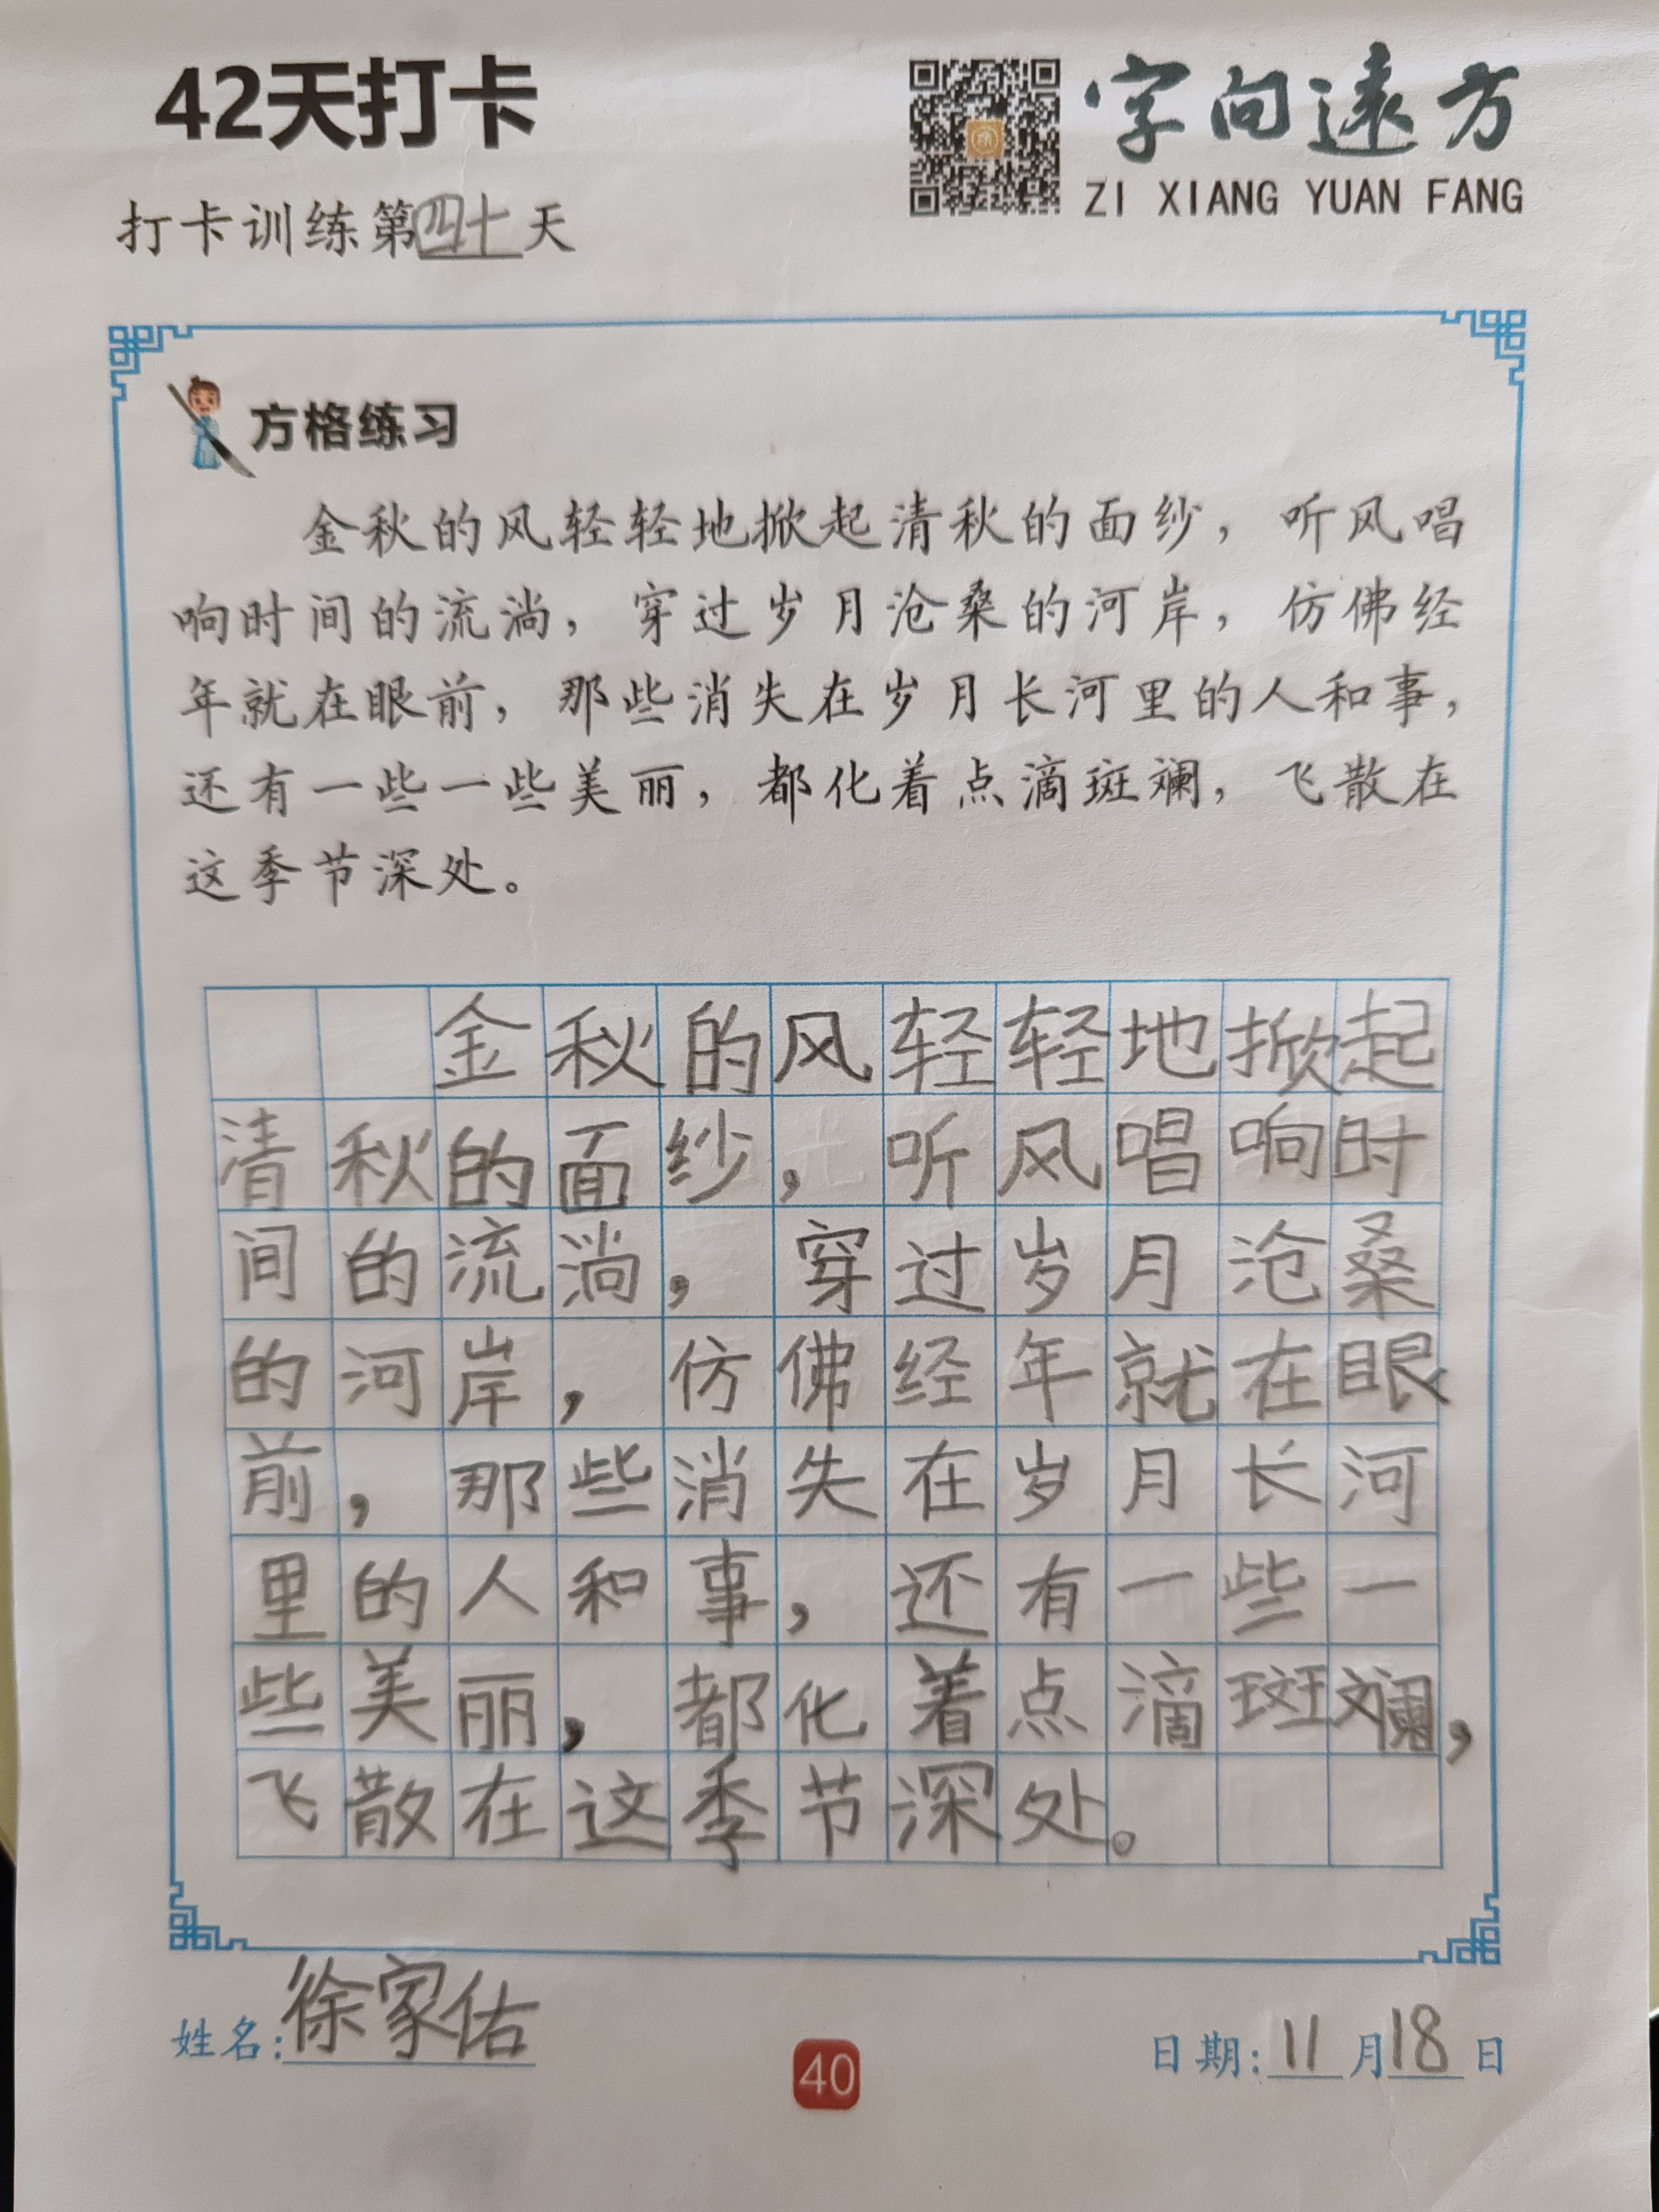 42天打卡
字向遠方
ZI XIANG YUAN FANG
打卡训练第四十天
方格练习
金秋的风轻轻地掀起清秋的面纱，听风唱
响时间的流淌，穿过岁月沧桑的河岸，仿佛经
年就在眼前，那些消失在岁月长河里的人和事，
还有一些一些美丽，都化着点滴斑斓，飞散在
这季节深处。
金秋的风轻轻地掀起
清秋的面纱，听风唱响时
间的流淌，穿过岁月沧桑
的河岸，仿佛经年就在眼
前，那些消失在岁月长河
里的人和事，还有一些一
些美丽，都化着点滴斑斓，
飞散在这季节深处。
姓名：徐家佑
40
日期：11月18日